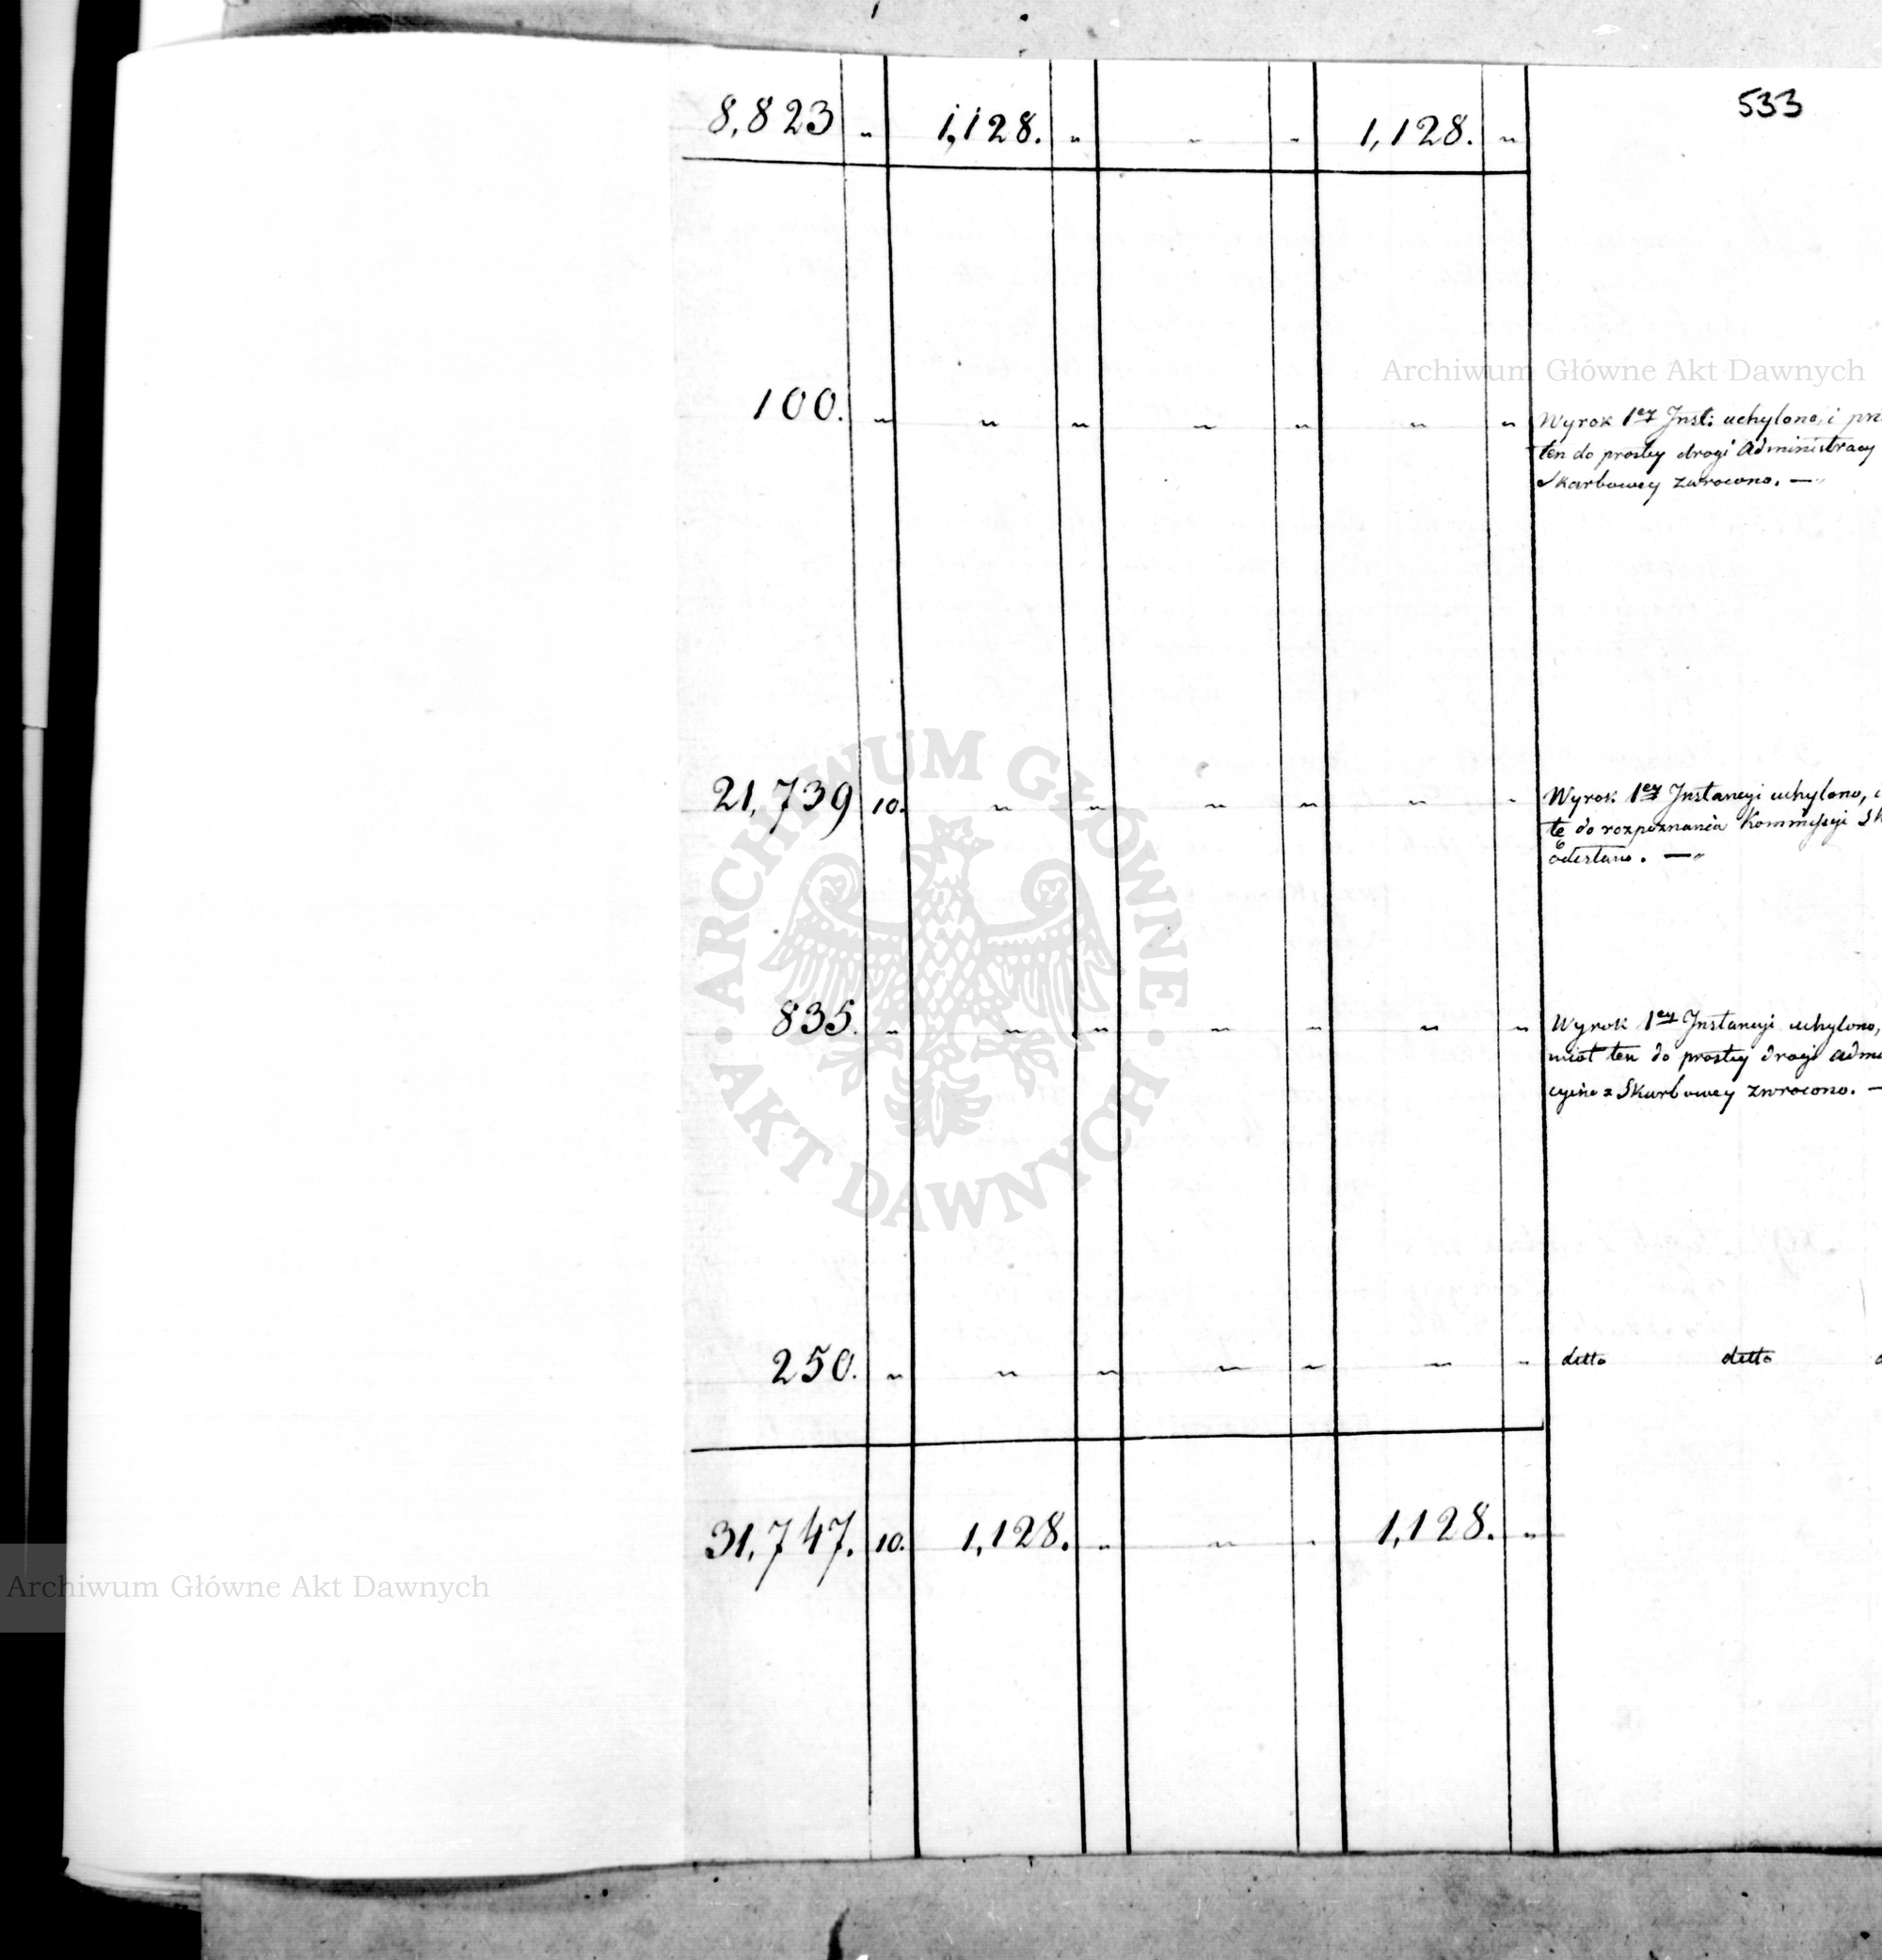 533
8,823 " 1,128. " " " 1,128. "
100. " " " " " " " Wyrok 1ey Inst: uchylono, i
ten do prostey drogi Administracy
Skarbowey zwrocono. —
21,739 10. " " " " " " Wyrok 1ey Instancyi uchylono,
te do rozpoznania Kommissyi Sk
Odesłano. —
835. " " " " " " " Wyrok 1ey Instancyi uchylono,
miot ten do prostey drogi adm
cyino = Skarbowey zwrocono. —
250. " " " " " " " detto detto
31,747. 10. 1,128. " " " 1,128. "
Archiwum Główne Akt Dawnych
ARCHIWUM GŁÓWNE · AKT DAWNYCH ·
Archiwum Główne Akt Dawnych